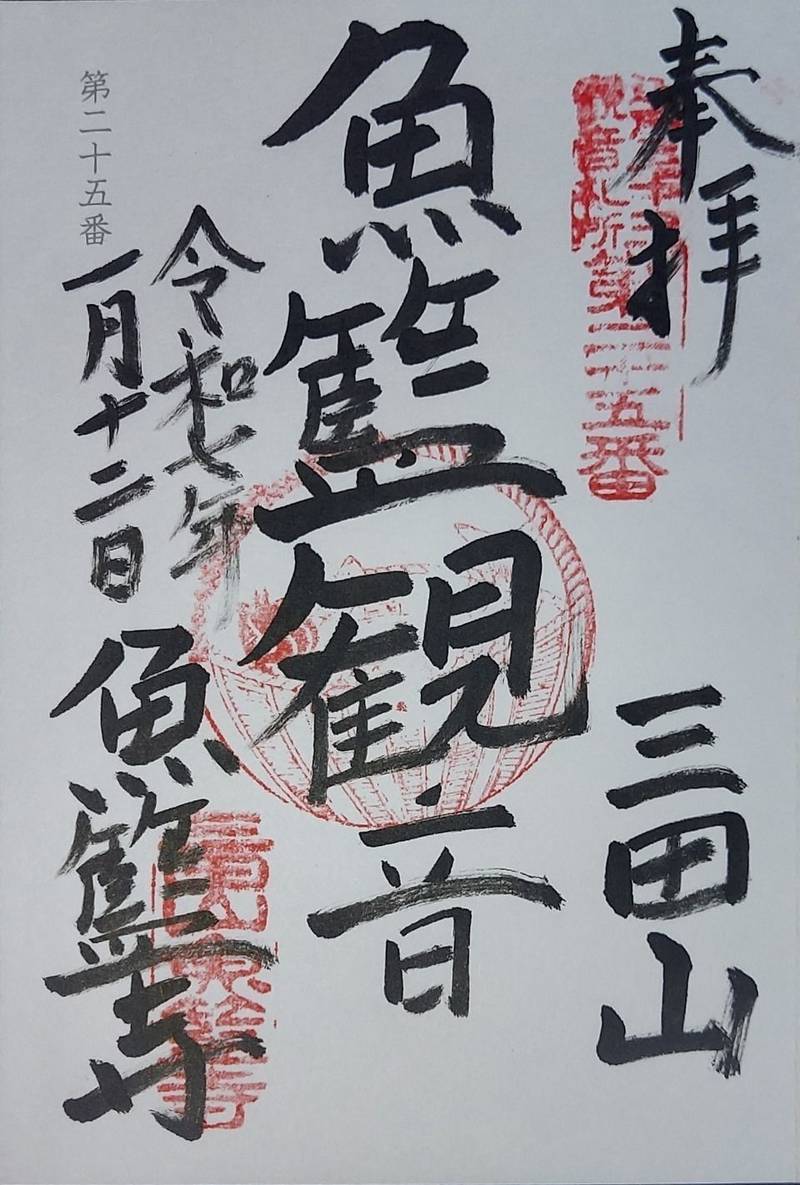 奉拝
三田山
魚籃観音
令和七年
一月十二日
魚籃寺
第二十五番
観音札所第二十五番
三田山魚籃寺